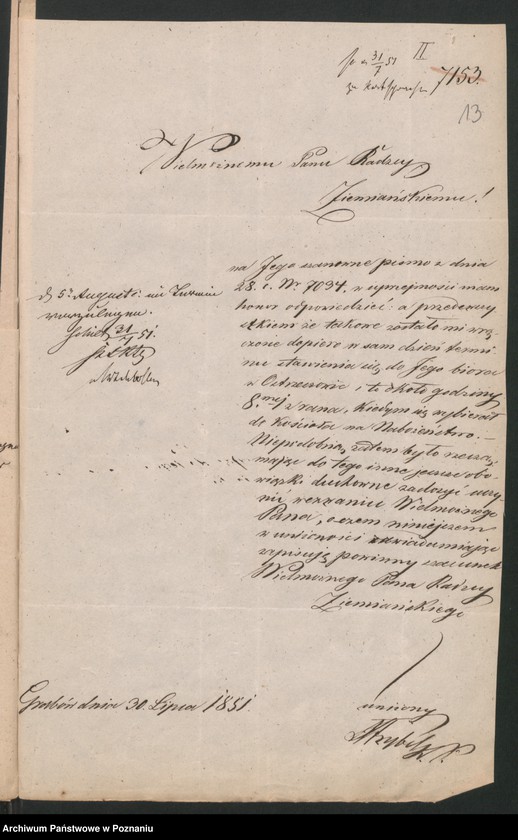 II
31/7 51
7153.
13
Wielmożnemu Panu Radzcy
Ziemiańskiemu!
na Jego szanowne pismo z dnia
28. c. Nr 7094. w uprzejmości mam
honor odpowiedzieć: a przedewszy
stkiem że takowe zostało mi wrę
czone dopiero w sam dzień termi
nu stawienia się do Jego biora
w Ostrzeszowie i to około godziny
8mej z rana, kiedym się wybierał
do Kościoła na Nabożeństwo. —
Niepodobną zatem było rzeczą
mając do tego inne jeszcze obo
wiązki duchowne zadosyć uczy
nić wezwaniu Wielmożnego
Pana, o czem niniejszem
w uniżoności zawiadamiając
zapisuję powinny szacunek
Wielmożnego Pana Radzcy
Ziemiańskiego
d 5t August
31/7 51.
Grabów dnia 30. Lipca 1851.
uniżony
Archiwum Państwowe w Poznaniu